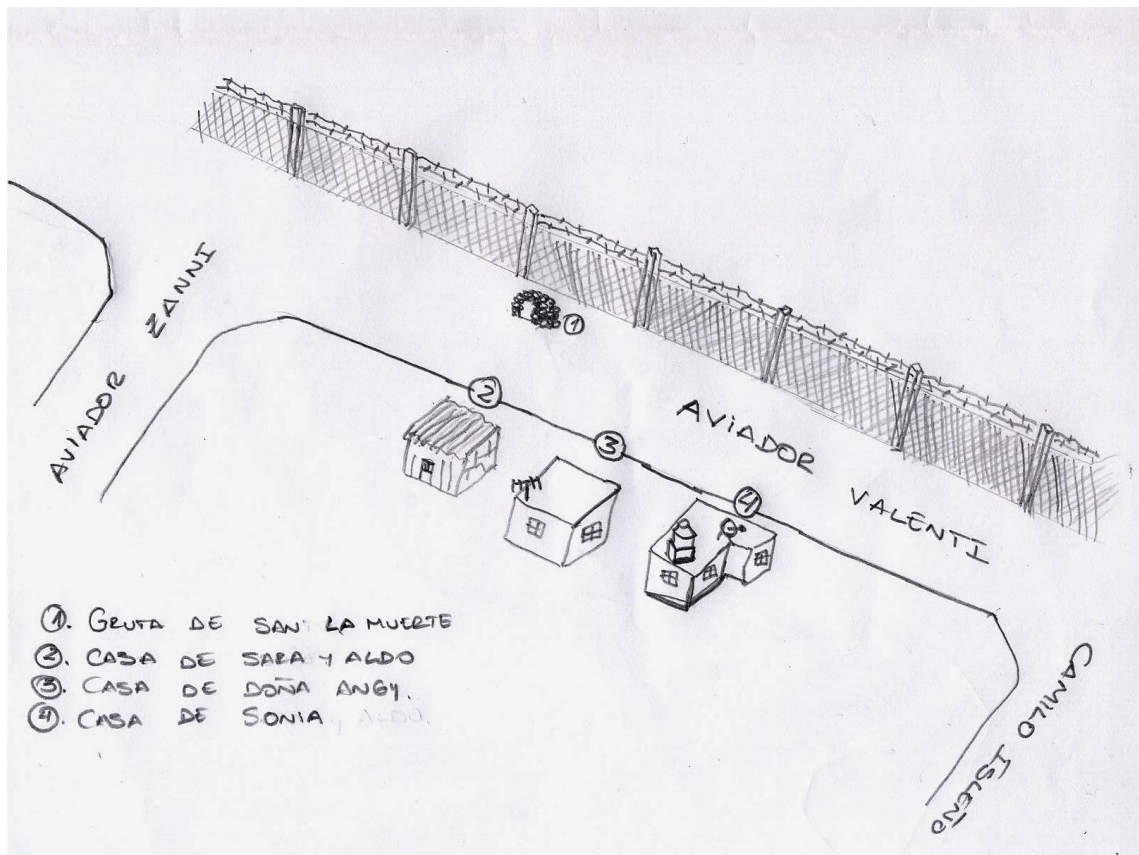 AVIADOR ZANNI
1
2
3
4
AVIADOR VALENTI
CAMILO ISLEÑO
1. GRUTA DE SAN LA MUERTE
2. CASA DE SARA Y ALDO
3. CASA DE DOÑA ANGY.
4. CASA DE SONIA Y ALDO.